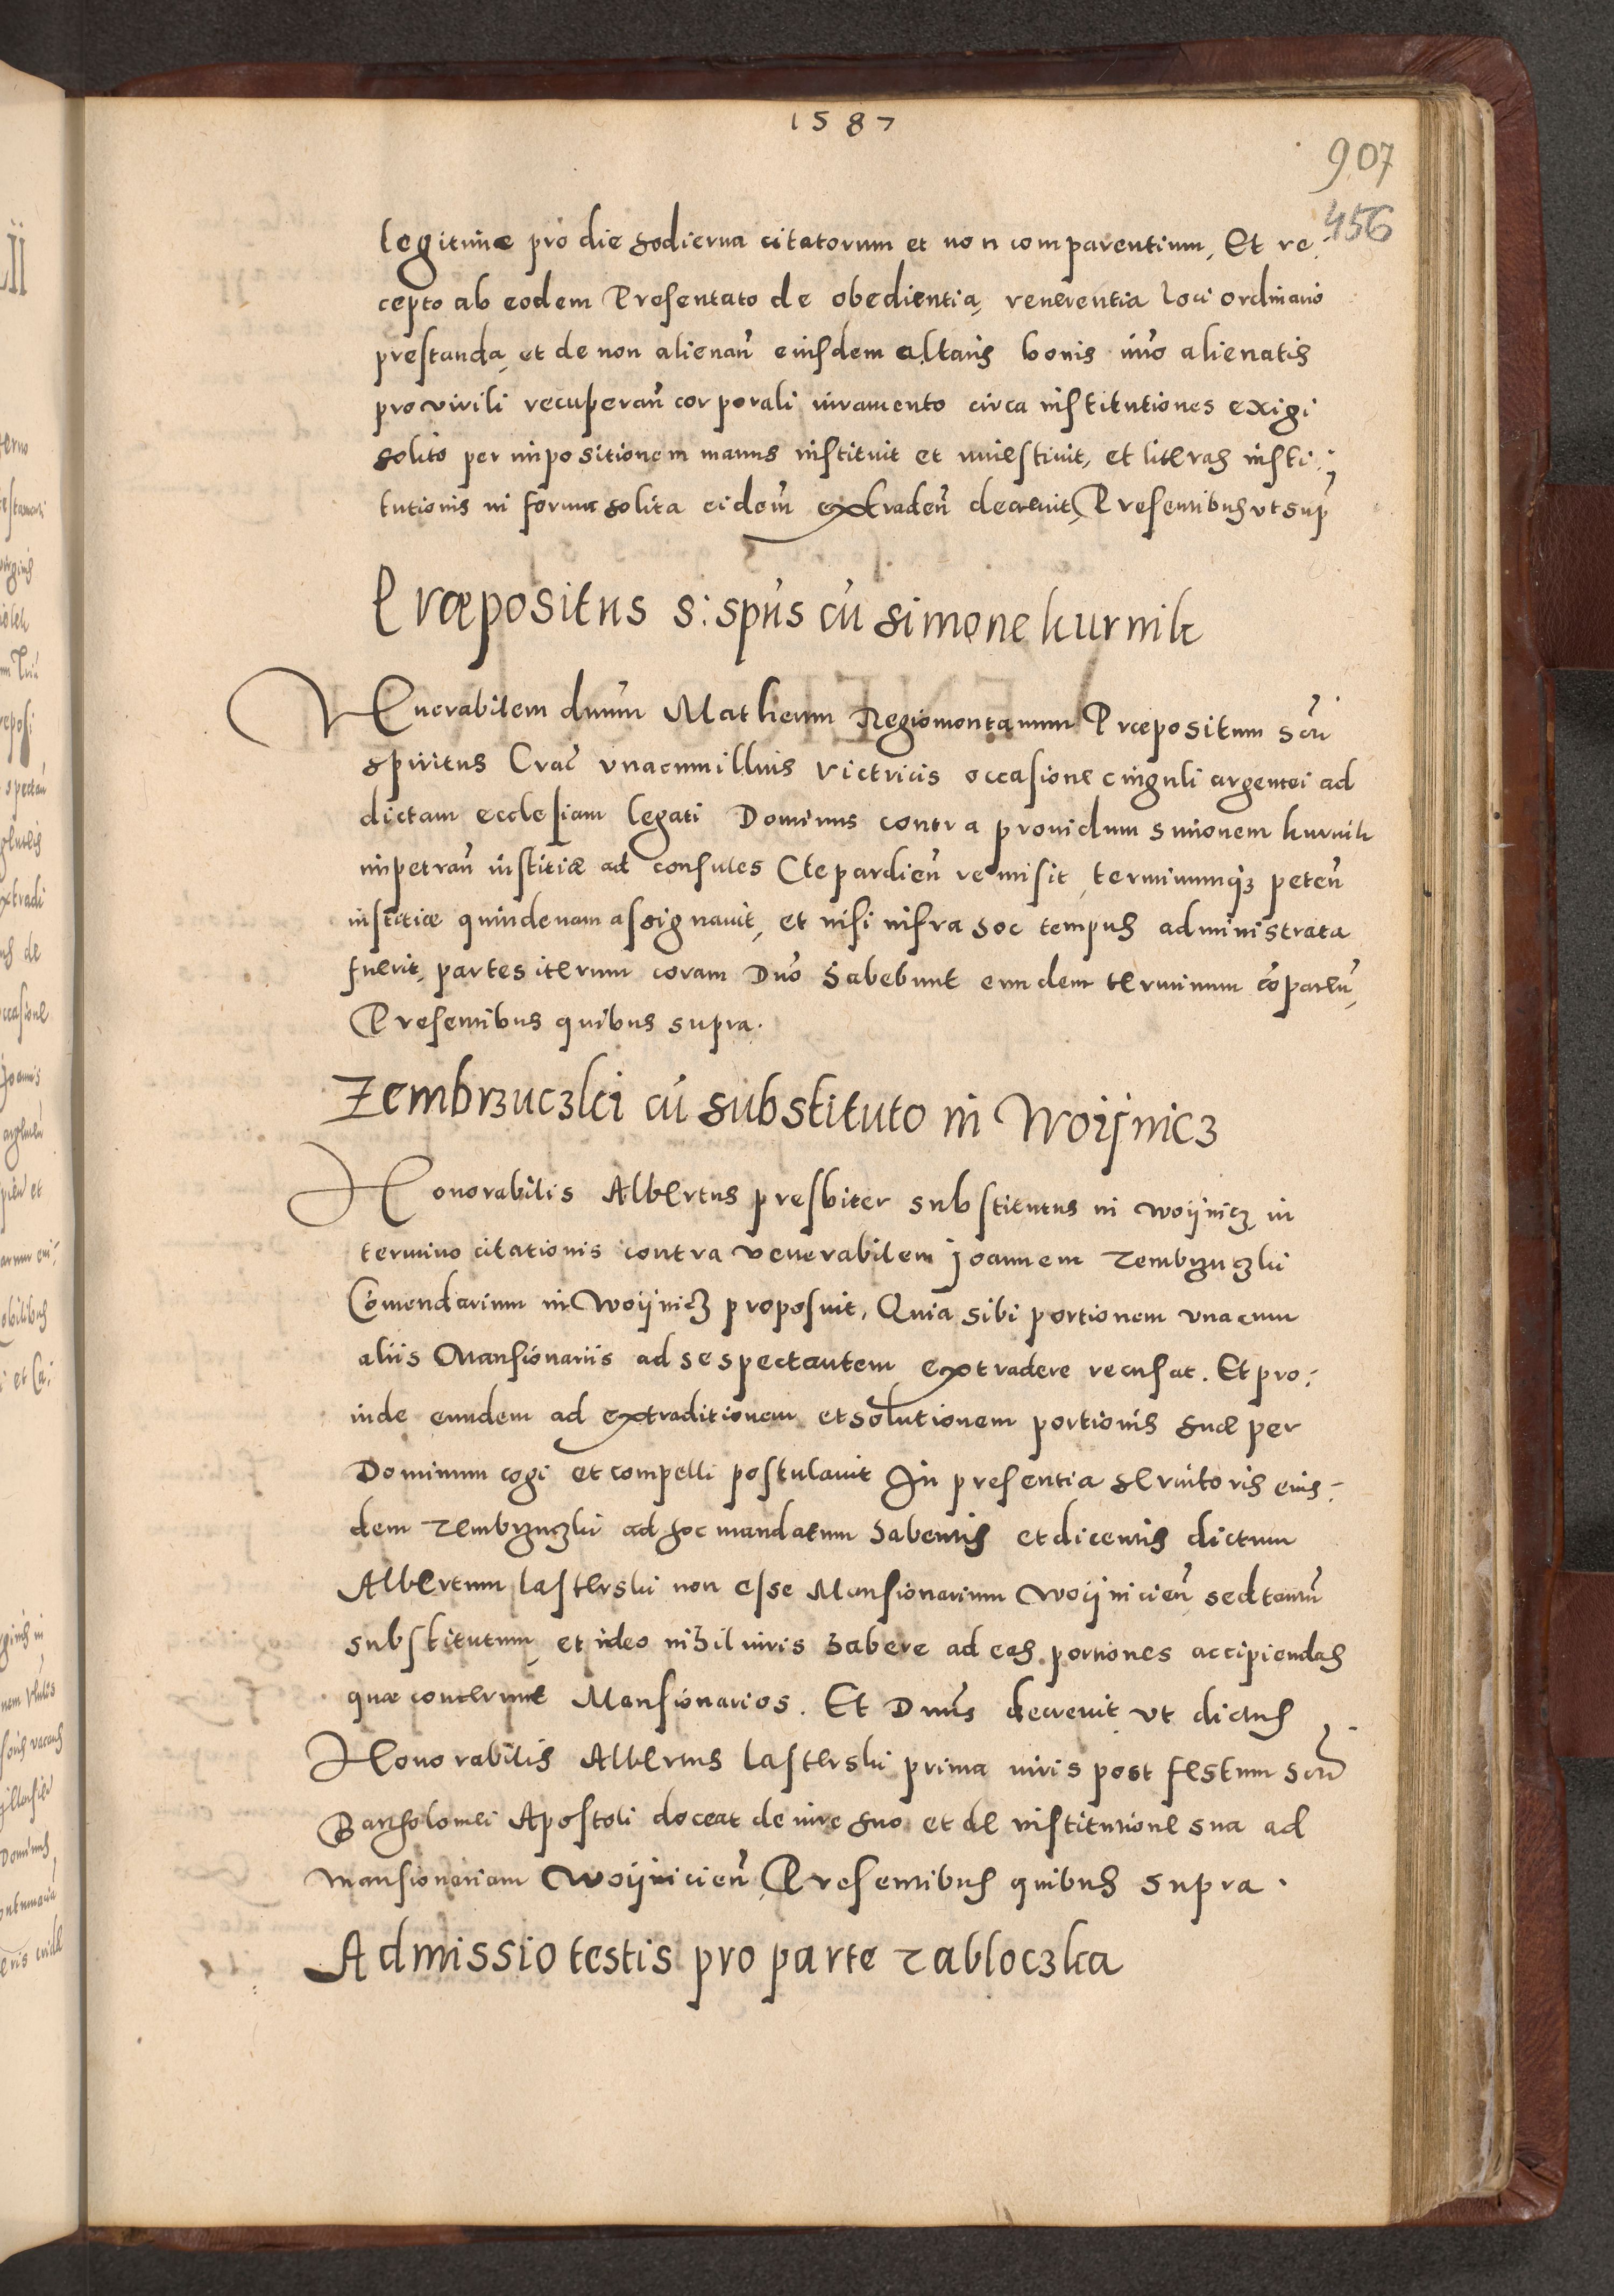 1587
907
456
legitime pro die hodierna citatorum et non comparentium, Et re-
cepto ab eodem Presentato de obedientia, reverentia loci ordinario
prestanda, et de non alienan̄ eiusdem altaris bonis imo alienatis
pro virili recuperan̄ corporali iuramento circa institutiones exigi
solito per impositionem manus instituit et investivit, et literas insti-
tutionis in forma solita eidem̄ extraden̄ decrevit, Presentibus vt sup̄
Præpositus S: Spūs cū Simone kurnik
Venerabilem dnūm Matheum Regiomontanum Præpositum Scti
Spiritus Crac̄ vnacum illius victricis occasione cinguli argentei ad
dictam ecclesiam legati Dominus contra providum Simonem kurnik
impetran̄ iustitiæ ad consules Clepardien̄ remisit, terminumq3 peten̄
iustitiæ quindenam assignavit, et nisi infra hoc tempus administrata
fuerit, partes iterum coram Dnō habebunt eundem terminum cōparen̄,
Presentibus quibus supra.
Zembrzuczki cū substituto in Woijnicz
Honorabilis Albertus presbiter substitutus in Woijnicz in
termino citationis contra venerabilem Joannem Zembrzuczki
Cōmendarium in Woijnicz proposuit, Quia sibi portionem vnacum
aliis Mansionariis ad se spectantem extradere recusat. Et pro-
inde eundem ad extraditionem et solutionem portionis suæ per
Dominum cogi et compelli postulavit In presentia servitoris eius-
dem Zembrzuczki ad hoc mandatum habentis et dicentis dictum
Albertum Lasterski non esse Mansionarium Woijnicien̄ sed tantū
substitutum, et ideo nihil iuris habere ad eas portiones accipiendas
quæ concernunt Mansionarios. Et Dnūs decrevit vt dictus
Honorabilis Albertus Lasterski prima iuris post festum Scti
Bartholomei Apostoli doceat de iure suo et de institutione sua ad
mansionariam Woijnicien̄, Presentibus quibus supra.
Admissio testis pro parte Zabloczka